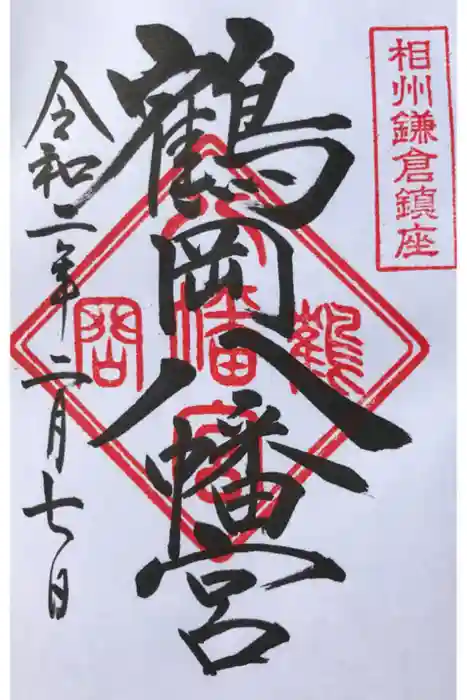 相州鎌倉鎮座
鶴岡八幡宮
令和二年二月七日
鶴
岡
八
幡
宮